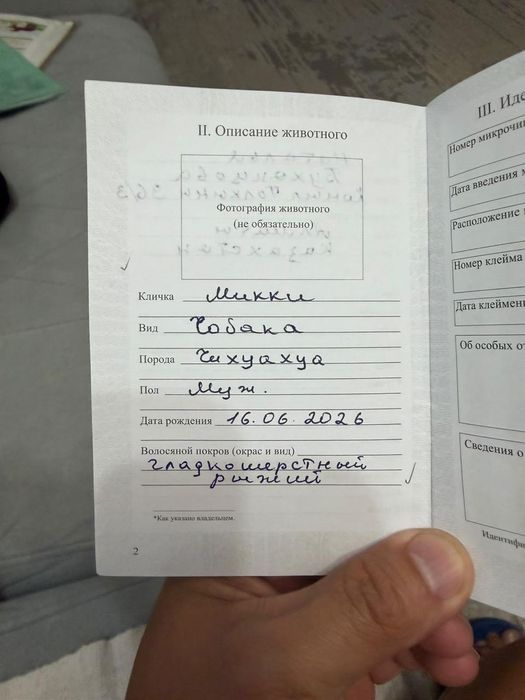 II. Описание животного
Фотография животного
(не обязательно)
Кличка Микки
Вид Собака
Порода Чихуахуа
Пол Муж.
Дата рождения 16.06.2026
Волосяной покров (окрас и вид)
гладкошерстный
рыжий
*Как указано владельцем.
2
III. Иде
Номер микрочи
Дата введения м
Расположение
Номер клейма
Дата клеймени
Об особых от
Сведения о
Идентифи